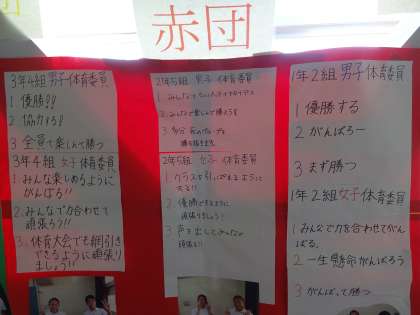 赤団
3年4組 男子 体育委員
1 優勝!!
2 協力する!
3 全員で楽しんで勝つ
3年4組 女子 体育委員
1. みんな楽しめるように
がんばろ!!
2. みんなで力合わせて
頑張ろう!!
3. 体育大会でも綱引き
できるように頑張り
ましょう!!
2年5組 男子 体育委員
2. みんなで楽しんで勝とうぜ
2年5組 女子 体育委員
1. クラスを引っぱれるように
2. 優勝できるように
頑張りましょう!
3. 声を出してみんなで
頑張る!!
1年2組 男子 体育委員
1 優勝する
2 がんばろー
3 まず勝つ
1年2組 女子 体育委員
1. みんなで力を合わせてがん
ばる。
2. 一生懸命がんばろう
3 がんばって勝つ